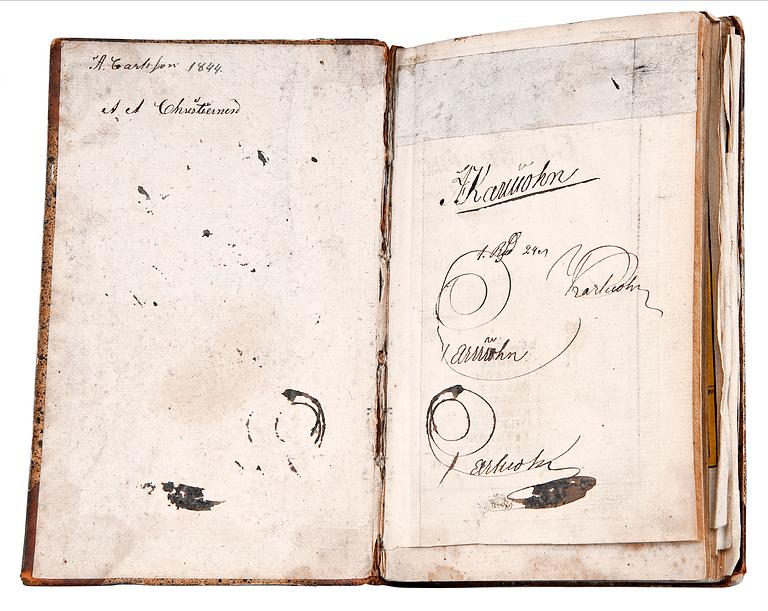 A. Carlson 1844.
A A Christiernin
A Karwohn
1. Rd 24
Karlwohn
Karwohn
Karlwohn